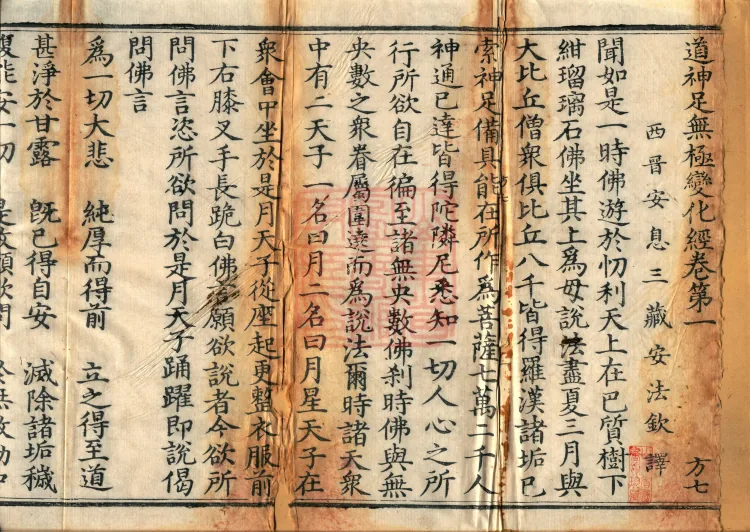 道神足無極變化經卷第一　方七
西晉安息三藏安法欽　譯
聞如是一時佛遊於忉利天上在巴質樹下
紺瑠璃石佛坐其上爲母說法盡夏三月與
大比丘僧衆俱比丘八千皆得羅漢諸垢已
索神足備具能在所作爲菩薩七萬二千人
神通已達皆得陀隣尼悉知一切人心之所
行所欲自在徧至諸無央數佛刹時佛與無
央數之衆眷屬圍遶而爲說法爾時諸天衆
中有二天子一名曰月二名曰月星天子在
衆會中坐於是月天子從座起更整衣服前
下右膝叉手長跪白佛言願欲說者今欲所
問佛言恣所欲問於是月天子踊躍即說偈
問佛言
爲一切大悲　純厚而得前　立之得至道
甚淨於甘露　旣已得自安　滅除諸垢穢
能安一切